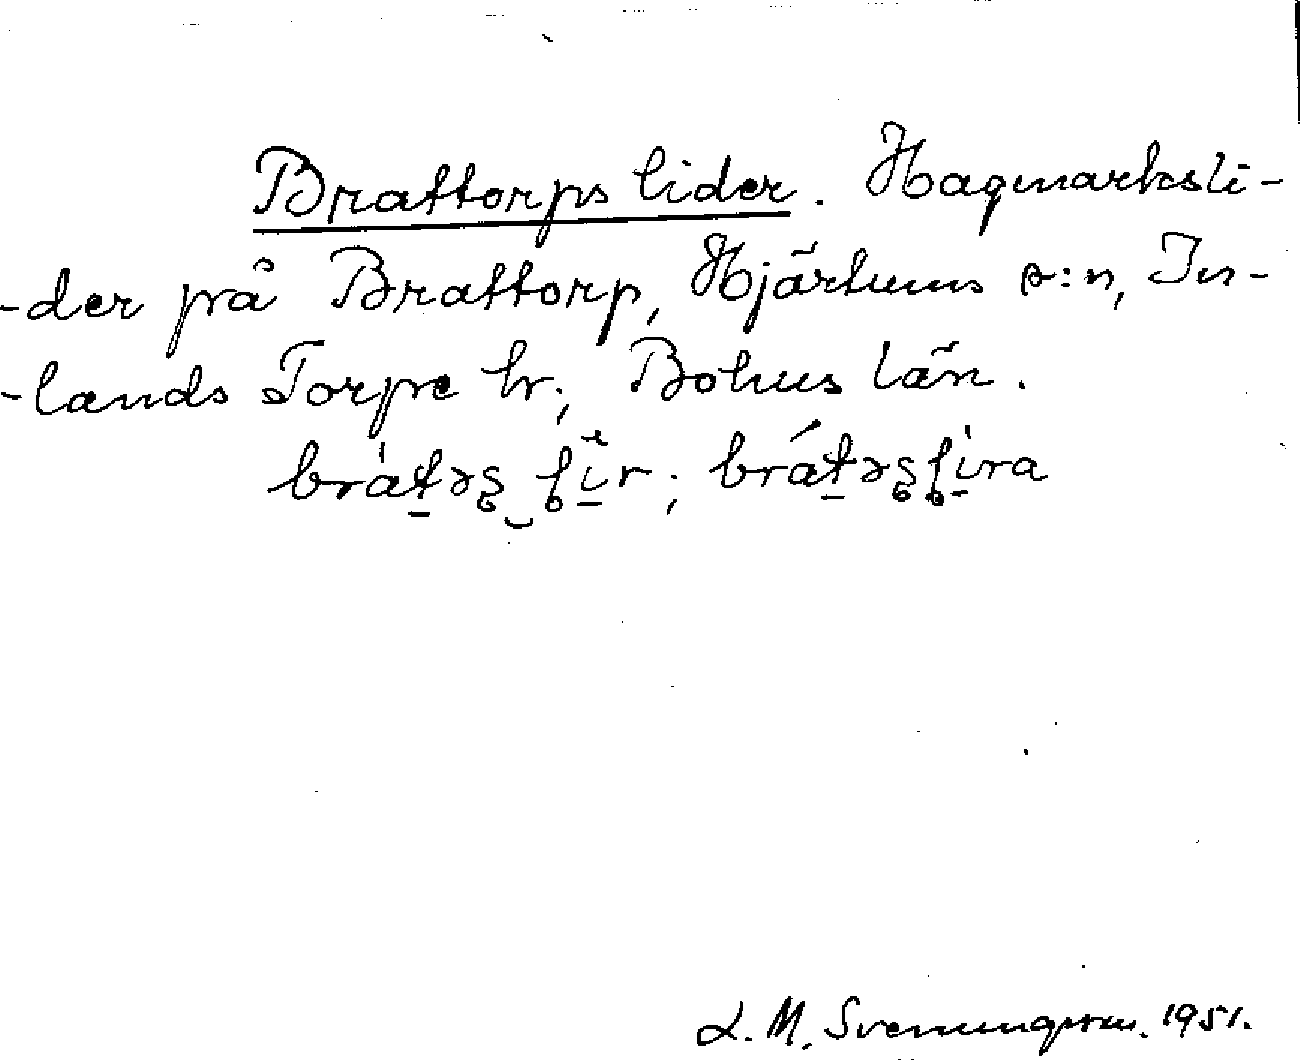 Brattorps lider. Hagmarksli-
-der på Brattorp, Hjärtums s:n, In-
-lands Torpe hr., Bohus län.
bràt̠əʂ‿ḷì̠r; brát̠əʂḷì̠ra
L. M. Svenungsson. 1951.